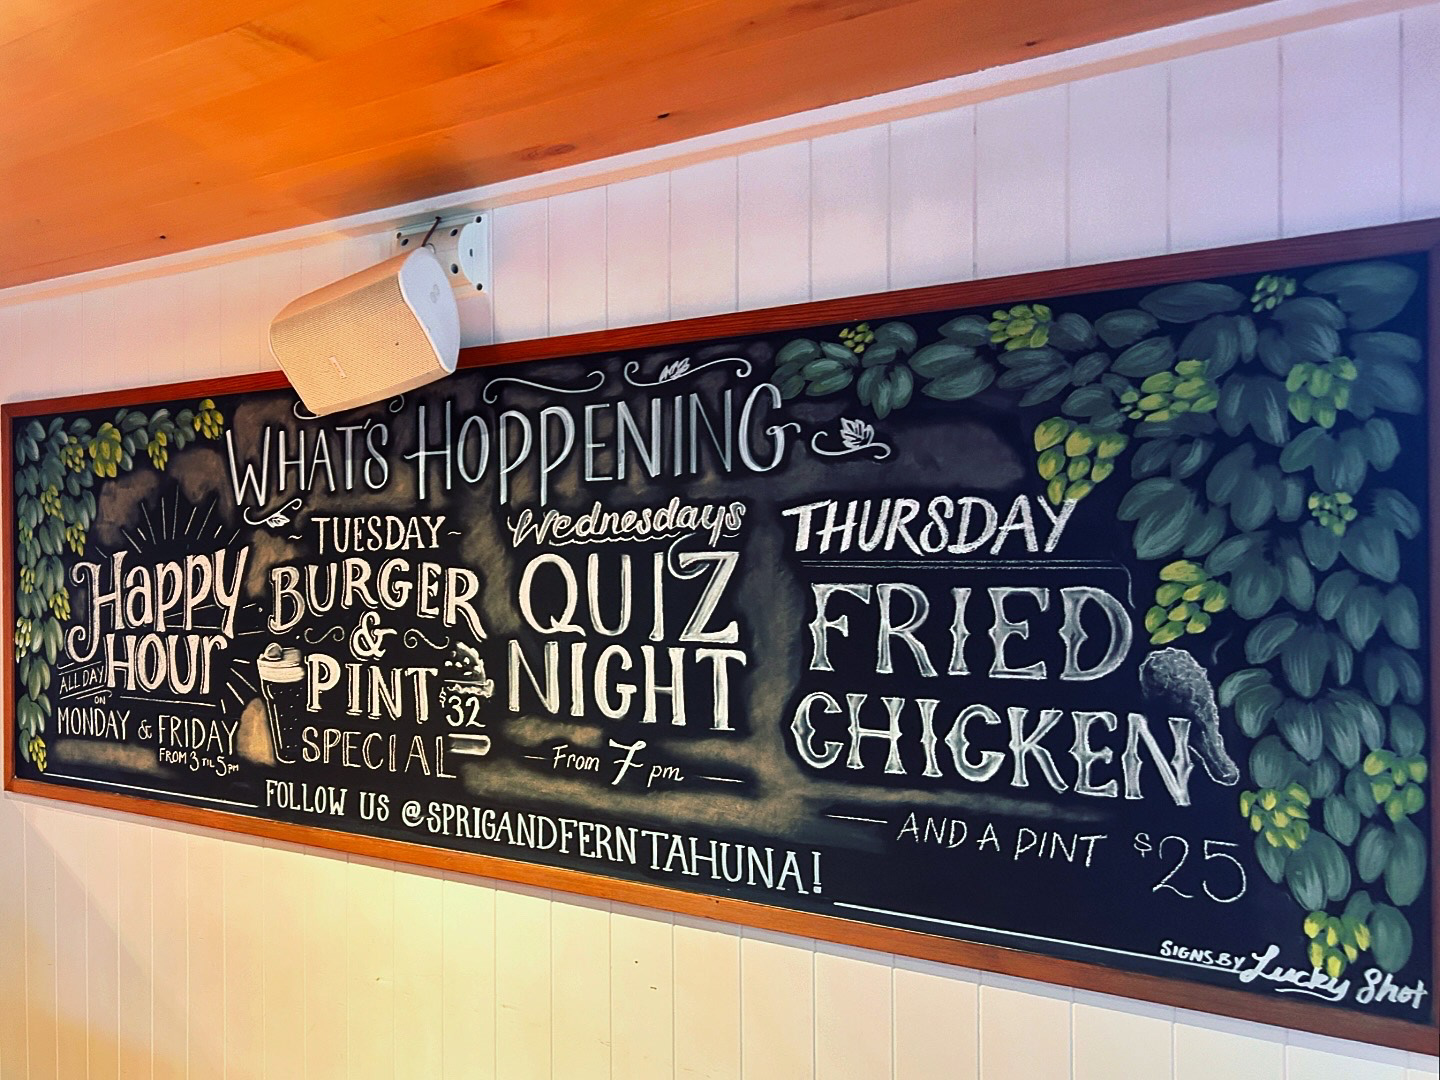 WHAT'S HOPPENING
Happy
HOUR
ALL DAY
ON
MONDAY & FRIDAY
FROM 3 TIL 5PM
~TUESDAY~
BURGER
&
PINT
$32
SPECIAL
Wednesdays
QUIZ
NIGHT
— From 7 pm —
THURSDAY
FRIED
CHICKEN
— AND A PINT $25
FOLLOW US @SPRIGANDFERNTAHUNA!
SIGNS BY Lucky Shot